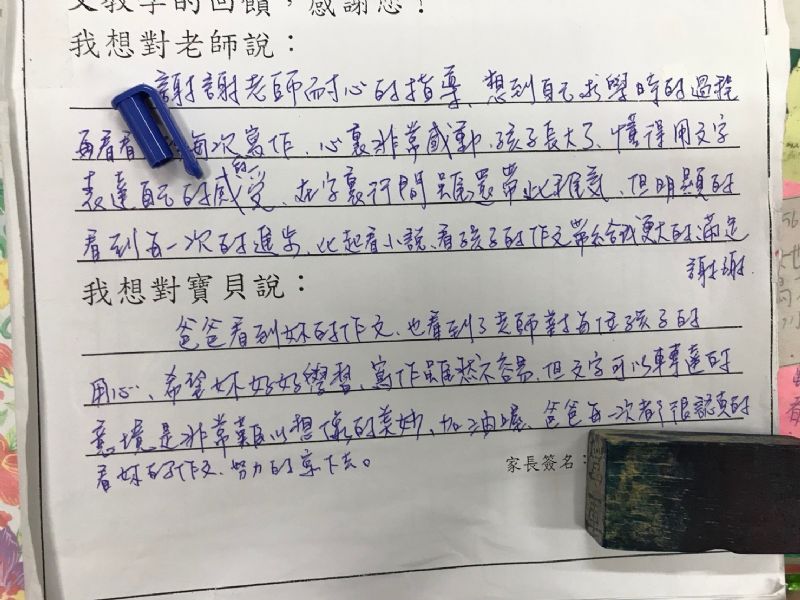 文教學的回饋，感謝您！
我想對老師說：
謝謝老師耐心的指導，想到自己求學時的過程
再看看 每次寫作，心裏非常感動，孩子長大了，懂得用文字
表達自己的感受，在字裏行間雖還帶些稚氣，但明顯的
看到每一次的進步，比起看小說，看孩子的作文帶給我更大的滿足
謝謝.
我想對寶貝說：
爸爸看到妳的作文，也看到了老師對每位孩子的
用心，希望妳好好學習，寫作雖然不容易，但文字可以轉達的
意境是非常難以想像的美妙，加油喔，爸爸每一次都很認真的
看妳的作文，努力的寫下去。
家長簽名：